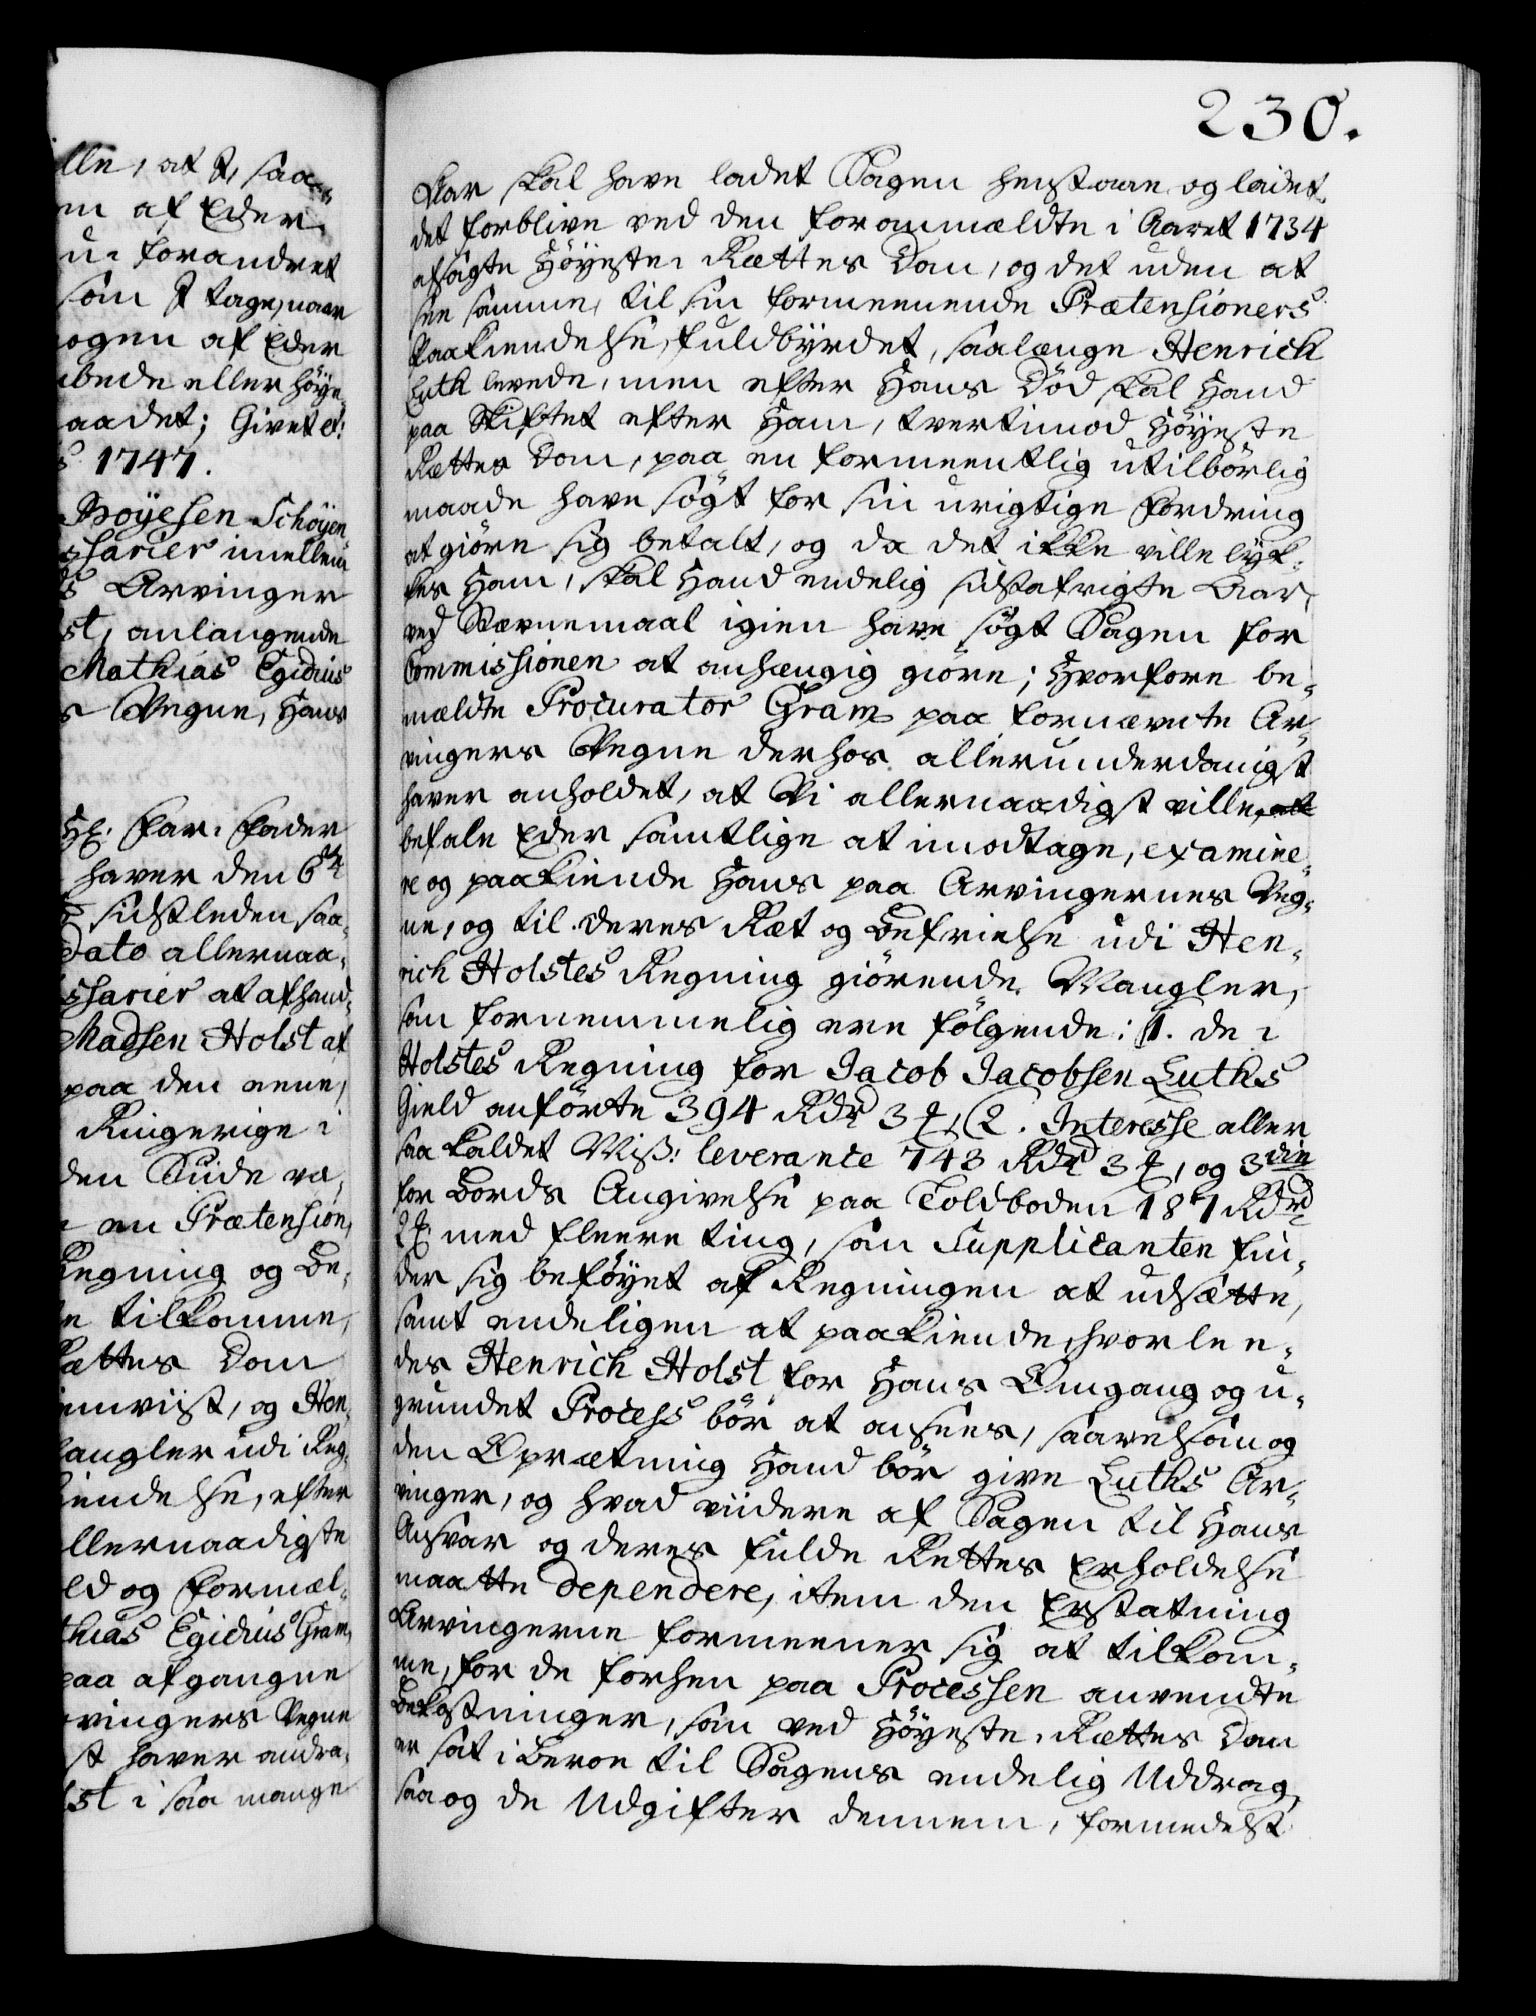 lle, at I, saa
en af Eder
u forandret
som I tage, naar
ogen af Eder
bede eller höye
aadet; Givet et:
s 1747.
Boyesen Schöyen
sarier imellem
s Arvinger
st, anlangende
Mathias Egidius
s Vegne, Hans
Hr. Far. Fader
haver den 6te
sidstleden saa
Dato allernaa,
ssarier at afhand
Madsen Holst af
paa den eene,
Ringerige i
den Side va,
en Prætension,
Regning og Be,
e tilkomme,
Rættes Dom
enviist, og Hen,
angler udi Reg,
iendelse, efter
llernaadigste
ed og formæl,
thias Egidius Gram,
paa afgangne
rvingers Vegne
st haver andra,
lst i saa mange
230.
Aar skal have ladet Sagen henstaae og ladet
det forblive ved den foranmældte i Aaret 1734
afsagte Höyeste Rættes Dom, og det uden at
see samme, til sin formeenende Prætensioners
Paakiendelse, fuldbyrdet, saalænge Henrich
Luth levede, men efter Hans Död skal Hand
paa Skiftet efter Ham, tvertimod Höyeste
Rættes Dom, paa en formeentlig utilbörlig
maade have sögt for sin urigtige Fordring
at giöre sig betalt, og da det ikke ville lyk,
kes Ham, skal Hand endelig sidstafvigte Aar,
ved Stævnemaal igien have sögt Sagen for
Commissionen at anhængig giöre; Hvorfore be,
mældte Procurator Gram paa fornævnte Ar,
vingers Vegne derhos allerunderdanigst
haver anholdet, at Vi allernaadigst ville
befale Eder samtlige at imodtage, examine,
re og paakiende Hans paa Arvingernes Veg,
ne, og til deres Ræt og Befrielse udi Hen,
rich Holstes Regning giörende Mangler,
som fornemmelig ere fölgende: 1. de i
Holstes Regning for Jacob Jacobsen Luths
Gield anförte 394 Rdr 3 , 2. Interesse eller
saa kaldet Miss: leverance 743 Rdr 3 , og 3die
for Bords Angivelse paa Toldboden 187 Rdr
2 med fleere ting, som Supplicanten fin,
der sig beföyet af Regningen at udsætte,
samt endeligen at paakiende, hvorlee,
des Henrich Holst for Hans Omgang og u,
grundet Process bör at ansees, saavelsom og
den Oprætning Hand bör give Luths Ar,
vinger, og hvad viidere af Sagen til Hans
Ansvar og deres fulde Rettes Erholdelse
maatte dependere, item den Erstatning
Arvingerne formeener sig at tilkom,
me, for de forhen paa Processen anvendte
Bekostninger, som ved Höyeste Rættes Dom
er sat i Beroe til Sagens endelig Uddrag,
saa og de Udgifter dennem, formedelst